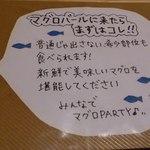 マグロバールに来たら
まずはコレ!!
普通じゃ出さない希少部位も
食べられます!
新鮮で美味しいマグロを
堪能してください
みんなで
マグロPARTY♪